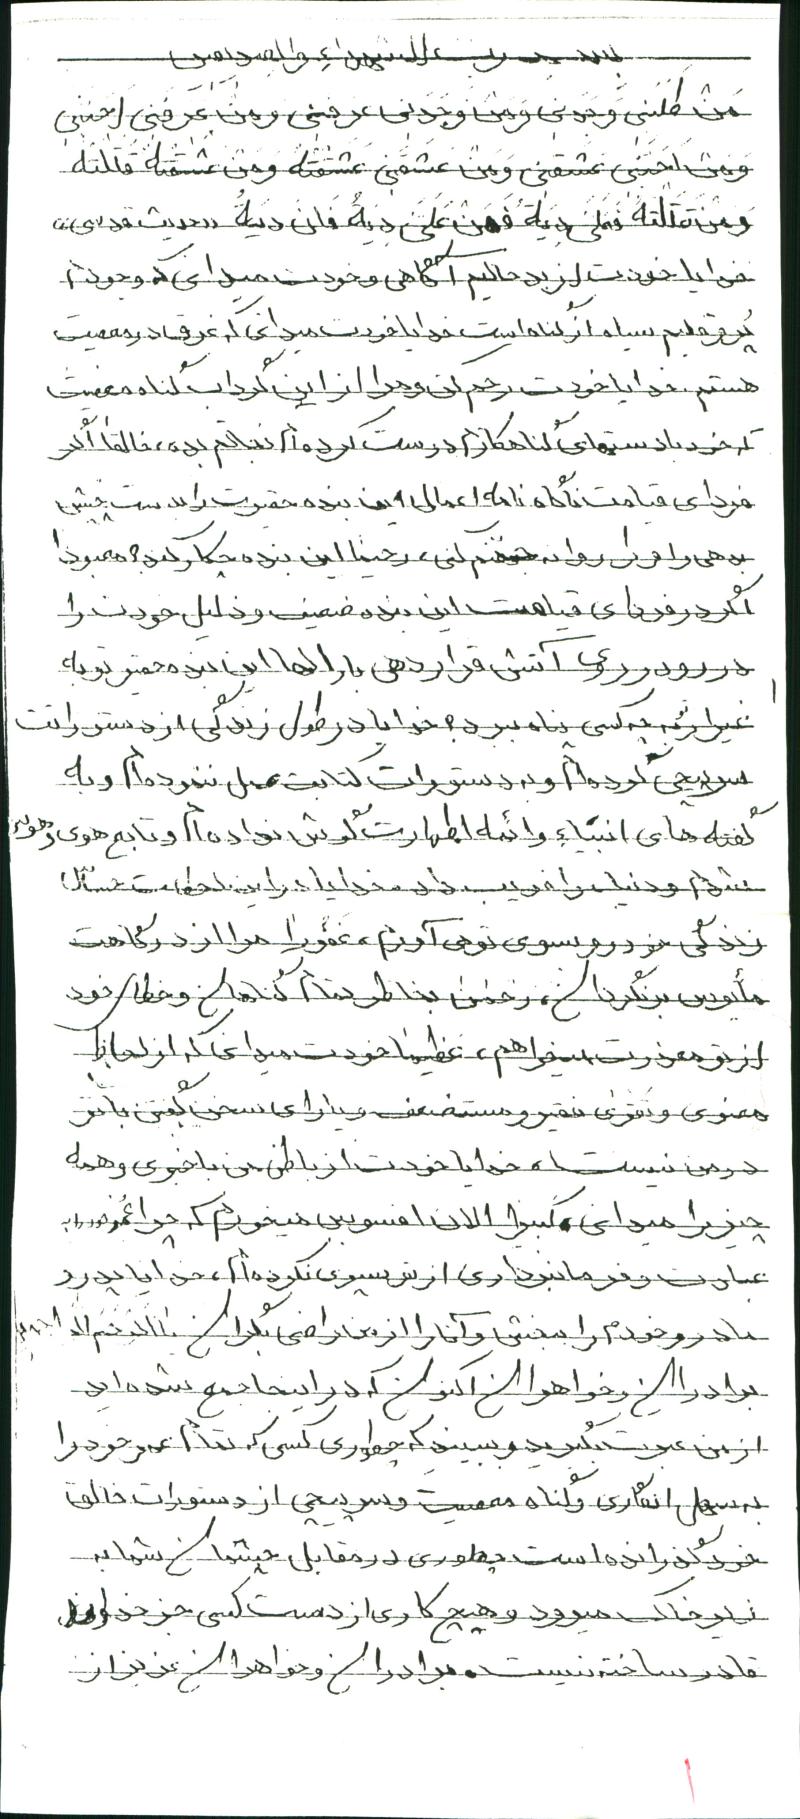 بسم رب الشهداء والصدیقین
مَن طَلَبنی وَجَدنی وَمَن وَجَدنی عرفنی ومَن عَرَفنی احبَّنی
وَمَن احَبَّنی عَشقنی وَمَن عَشَقَنی عَشَقتُهُ وَمَن عَشَقتُهُ قَتَلتُهُ
وَمَن قَتَلتُهُ فعلیَّ دِیَتُهُ فَمَن عَلَیَّ دِیَتُهُ فَانَا دِیَتُهُ «حدیث قدسی»
خدایا خودت از بد حالیم آگاهی و خودت میدانی که وجودم
پر و قلبم سیاه از گناه است خدایا خودت میدانی که غرق در معصیت
هستم. خدایا خودت رحم کن و مرا از این گرداب گناه معصیت
که خود با دستهای گناهکارم درست کرده‌ام نجاتم بده، خالقا اگر
فردای قیامت نامه اعمال این بنده حقیرت را بدست چپش
بدهی و او را روانه جهنم کنی، رحیما این بنده چکار کند؟ معبودا
اگر در فردای قیامت این بنده ضعیف و ذلیل خودت را
در رود رروی آتش قرار دهی بارالها این بنده حقیر تو به
غیر از تو به کسی پناه برد؟ خدایا در طول زندگی از دستوراتت
سرپیچی کرده‌ام و به دستورات کتابت عمل ننموده‌ام و به
گفته های انبیاء وائمه اطهارت گوش نداده‌ام و تابع هوی وهوس
شدم و دنیا مرا فریب داد. خدایا در این لحظات
زندگی مز رو بسوی تو می آورم، غفورا مرا از درگاهت
مأیوس بر نگردان، رحمن بخاطر تمام گناهان و خطای خود
از تو معذرت میخواهم، عظیما خودت میدانی که از لحاظ
معنوی و تقوی فقیر و مستضعف و یارای سخن گفتن با تو
در من نیست، خدایا خودت از باطن من باخبری و همه
چیز را میدانی، کبیرا الان افسوس میخورم که چرا عمرم را به
عبادت و فرمانبرداری از تو سپری نکرده‌ام، خدایا پدر و
مادر و خودم را ببخش و آنانرا از من راضی بگردان
برادران و خواهران اکنون که در اینجا جمع شده اید
از من عبرت بگیرید و ببینید که چطوری کسی که تمام عمر خود را
به سهل انگاری و گناه معصیت و سرپیچی از دستورات خالق
خود گذرانده است چطوری در مقابل چشمان شما به
زیر خاک میرود و هیچ کاری از دست کسی جز خداوند
قادر ساخته نیست. برادران و خواهران عزیز از